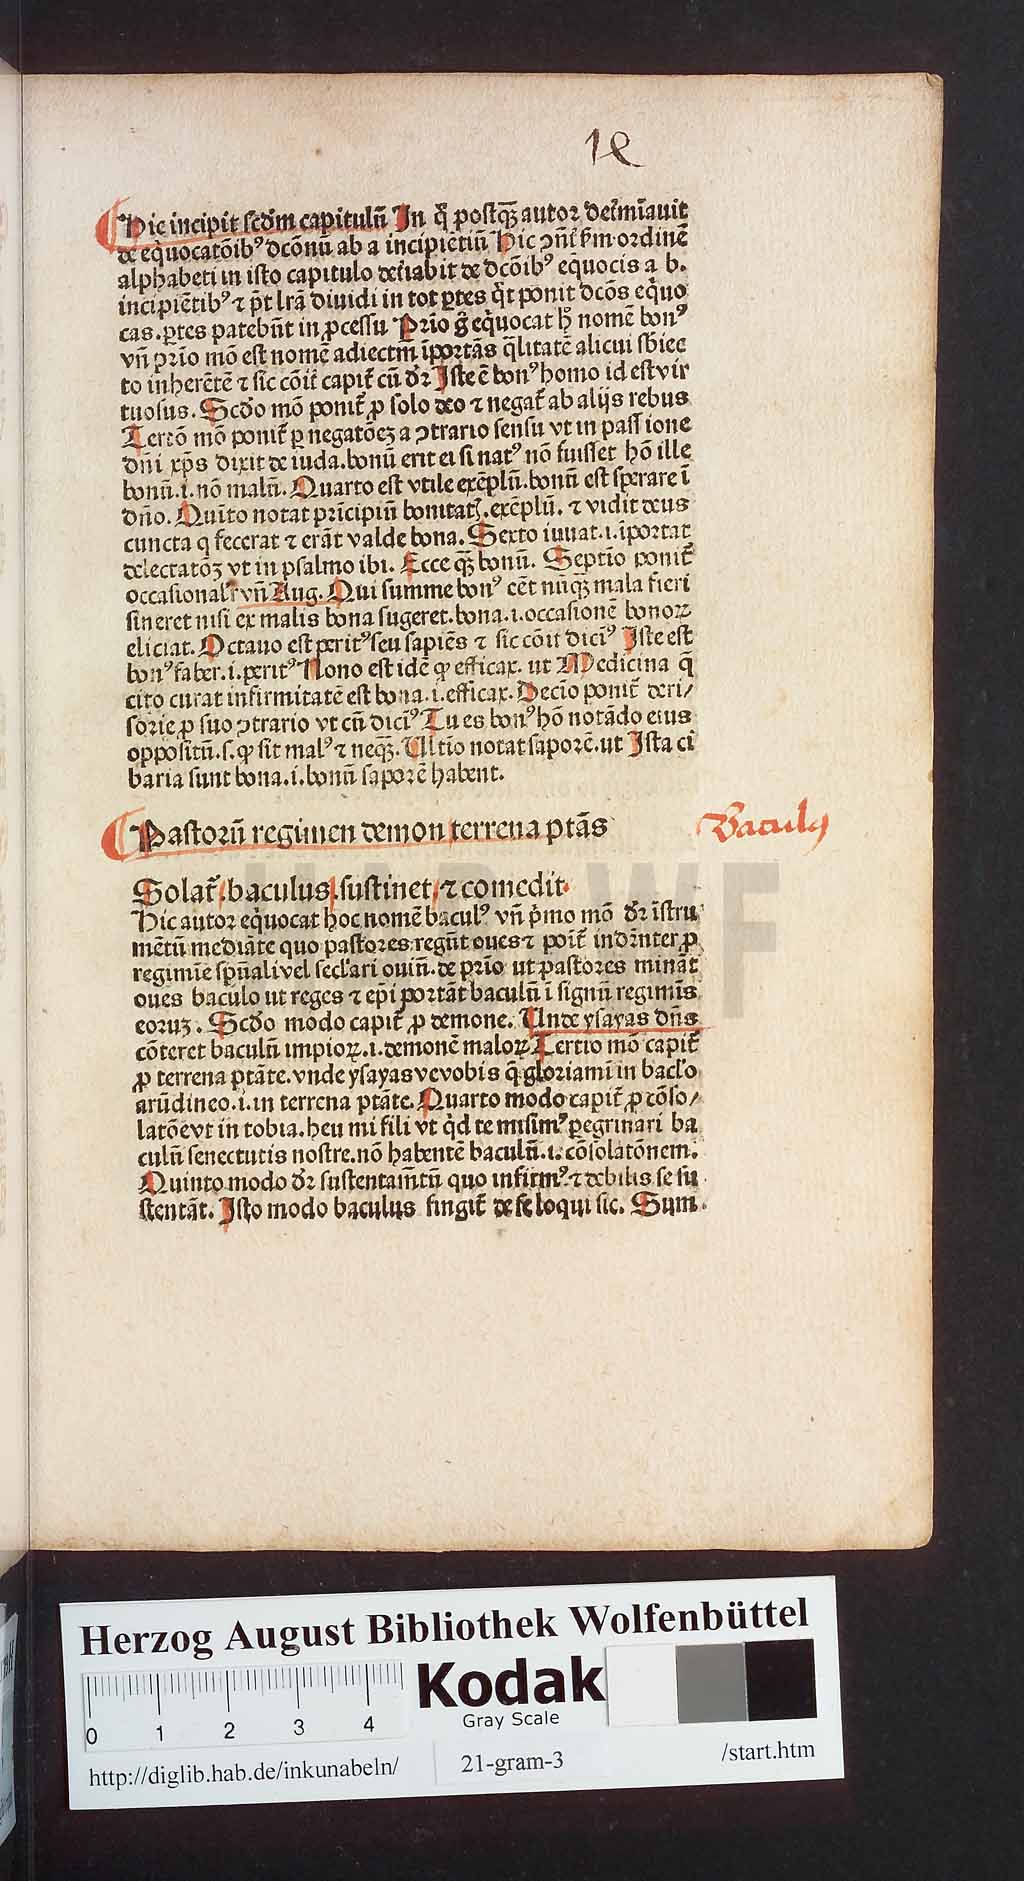 18
Hic incipit scd̄m capitulū In q̄ postq̄ꝫ autor determ̄iauit
de eq̄uocatōibꝰ dcōnū ab a incipietiū Hic ꝯn̄t̄ s̄m ordinē
alphabeti in isto capitulo det̄iabit de dcōibꝰ equocis a b.
incipiētibꝰ ⁊ p̄t lrā diuidi in tot ꝑtes q̄t ponit dcōs eq̄uo
cas. ꝑtes patebūt in ꝓcessu Prīo g̃ eq̄uocat h̄ nomē bonꝰ
vn̄ prīo mō est nomē adiectm̄ īportās q̄litatē alicui sbiec
to inherētē ⁊ sic cōit̄ capit̄ cū dr̄ Iste ē bonꝰ homo id est vir
tuosus. Scdo mō ponit̄ ꝓ solo deo ⁊ negat̄ ab alijs rebus
Tertō mō ponit̄ ꝑ negatōeꝫ a ꝯtrario sensu vt in passione
dn̄i xp̄s dixit de iuda. bonū erit ei si natꝰ nō fuisset hō ille
bonū .i. nō malū. Quarto est vtile exēplū. bonū est sperare ī
dn̄o. Quīto notat prīcipiū bonitatꝭ. exēplū. ⁊ vidit deus
cuncta q fecerat ⁊ erāt valde bona. Sexto iuuat .i. īportat
delectatōꝫ vt in psalmo ibi. Ecce q̄ꝫ bonū. Septīo ponit̄
occasionalr̄ vn̄ Aug. Qui summe bonꝰ cēt nūq̄ꝫ mala fieri
sineret nisi ex malis bona sugeret. bona .i. occasionē bonoꝝ
eliciat. Octauo est peritꝰ seu sapiēs ⁊ sic cōit̄ dicīꝰ Iste est
bonꝰ faber .i. peritꝰ Nono est idē qꝫ efficax. ut Medicina q̄
cito curat infirmitatē est bona .i. efficax. Decīo ponit̄ deri/
sorie ꝓ suo ꝯtrario vt cū dicīꝰ Tu es bonꝰ hō notādo eius
oppositū .s. qꝫ sit malꝰ ⁊ neq̄ꝫ. Ultīo notat saporē. ut Ista ci
baria sunt bona .i. bonū saporē habent.
Pastorū regimen demon terrena ptās
Baculꝰ
Solat̄ baculus sustinet ⁊ comedit
Hic autor eq̄uocat hoc nomē baculꝰ vn̄ p̄mo mō dr̄ īstru
mētū mediāte quo pastores regūt oues ⁊ poīt̄ indr̄nter ꝓ
regimīe sp̄ūali vel secl'ari ouiū. de prīo ut pastores mināt
oues baculo ut reges ⁊ ep̄i portāt baculū ī signū regimīs
eoruꝫ. Scdo modo capit̄ ꝓ demone. Unde ysayas dn̄s
cōteret baculū impioꝝ .i. demonē maloꝝ Tertio mō capit̄
ꝓ terrena ptāte. vnde ysayas ve vobis q̄ gloriamī in bacl'o
arūdineo .i. in terrena ptāte. Quarto modo capit̄ ꝓ cōso/
latōe vt in tobia. heu mi fili vt q̄d te misimꝰ peregrinari ba
culū senectutis nostre. nō habentē baculū .i. cōsolatōnem.
Quinto modo dr̄ sustentam̄tū quo infirmꝰ ⁊ debilis se su
stentāt. Isto modo baculus fingit̄ de se loqui sic. Sum
Herzog August Bibliothek Wolfenbüttel
Kodak
Gray Scale
0 1 2 3 4
http://diglib.hab.de/inkunabeln/
21-gram-3
/start.htm
HAB WF